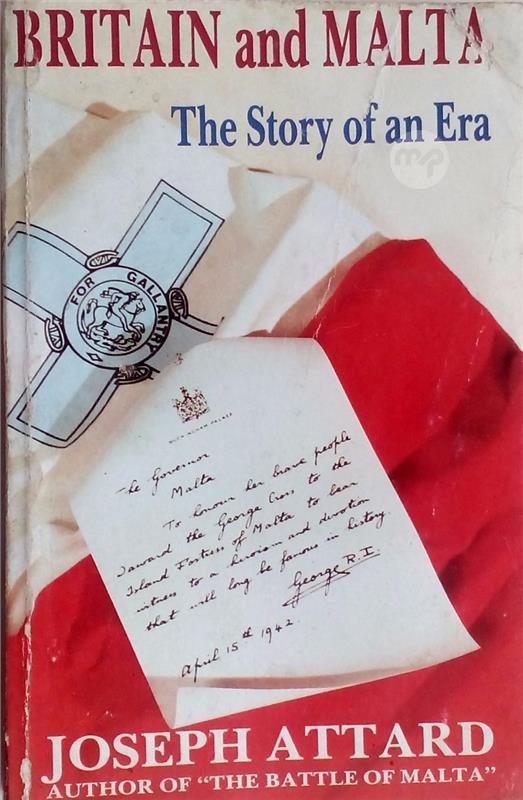 BRITAIN and MALTA
The Story of an Era
mp
FOR GALLANTRY
BUCKINGHAM PALACE
The Governor
Malta
To honour her brave people
I award the George Cross to the
Island Fortress of Malta to bear
witness to a heroism and devotion
that will long be famous in history.
George R.I.
April 15th 1942.
JOSEPH ATTARD
AUTHOR OF “THE BATTLE OF MALTA”